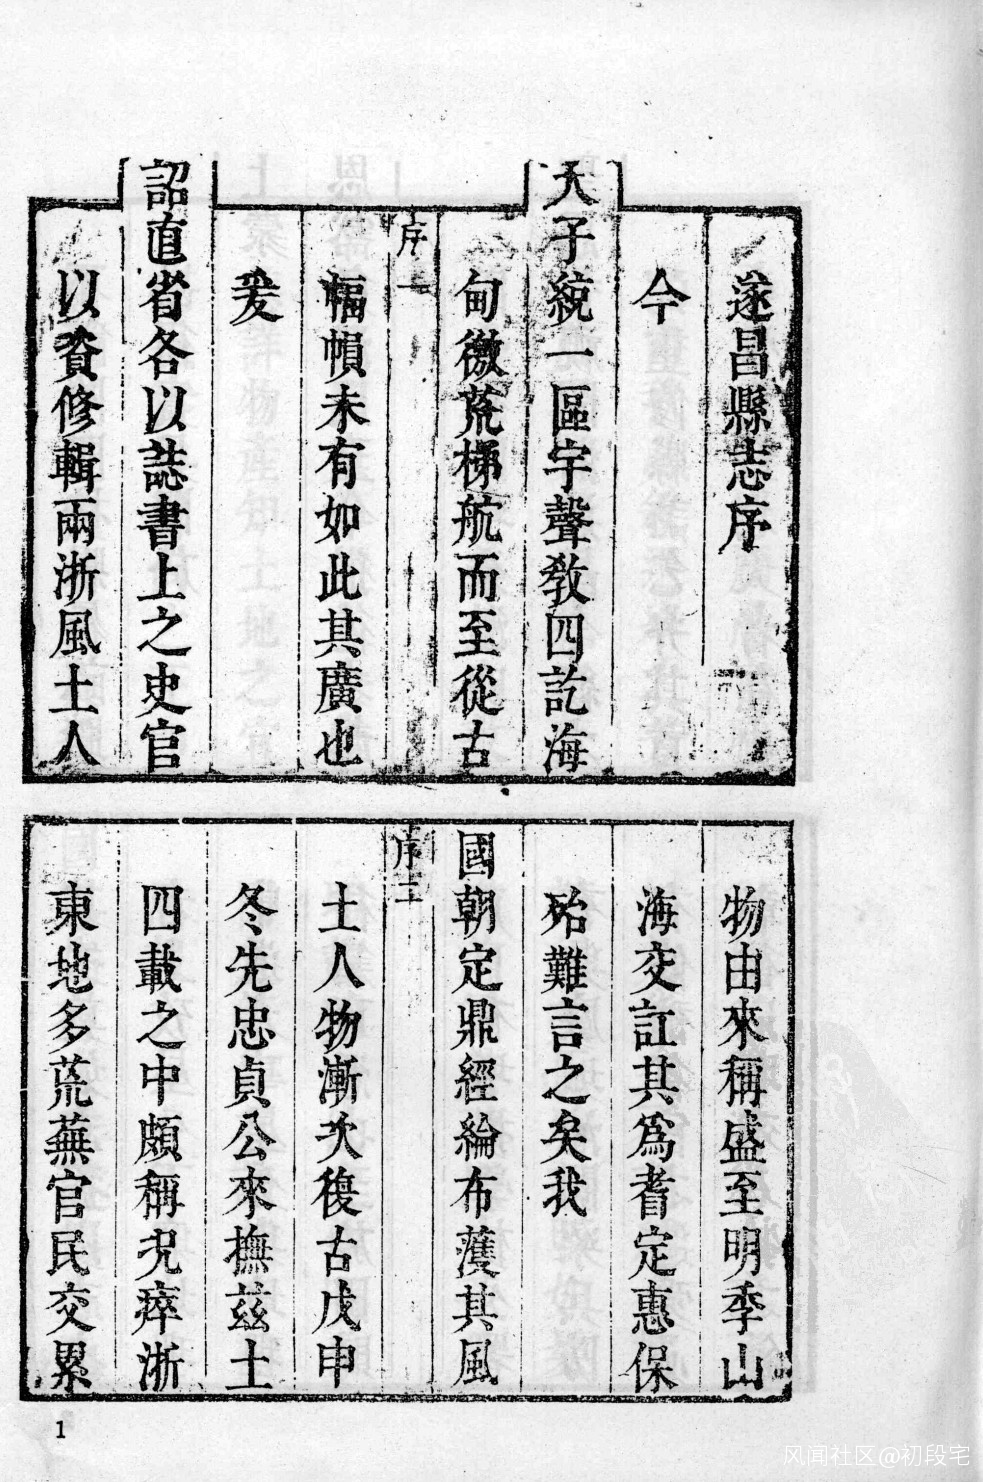 遂昌縣志序
今
天子統一區宇聲敎四訖海
甸徼荒梯航而至從古
序一
幅幀未有如此其廣也
爰
詔直省各以誌書上之史官
以資修輯兩浙風土人
物由來稱盛至明季山
海交訌其爲耆定惠保
殆難言之矣我
國朝定鼎經綸布濩其風
序二
土人物漸次復古戊申
冬先忠貞公來撫茲土
四載之中頗稱况瘁浙
東地多荒蕪官民交累
1
风闻社区@初段宅